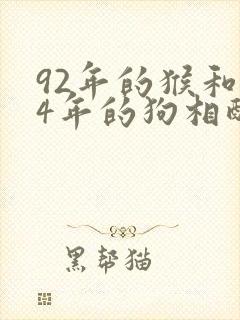 92年的猴和
4年的狗相
黑帮猫